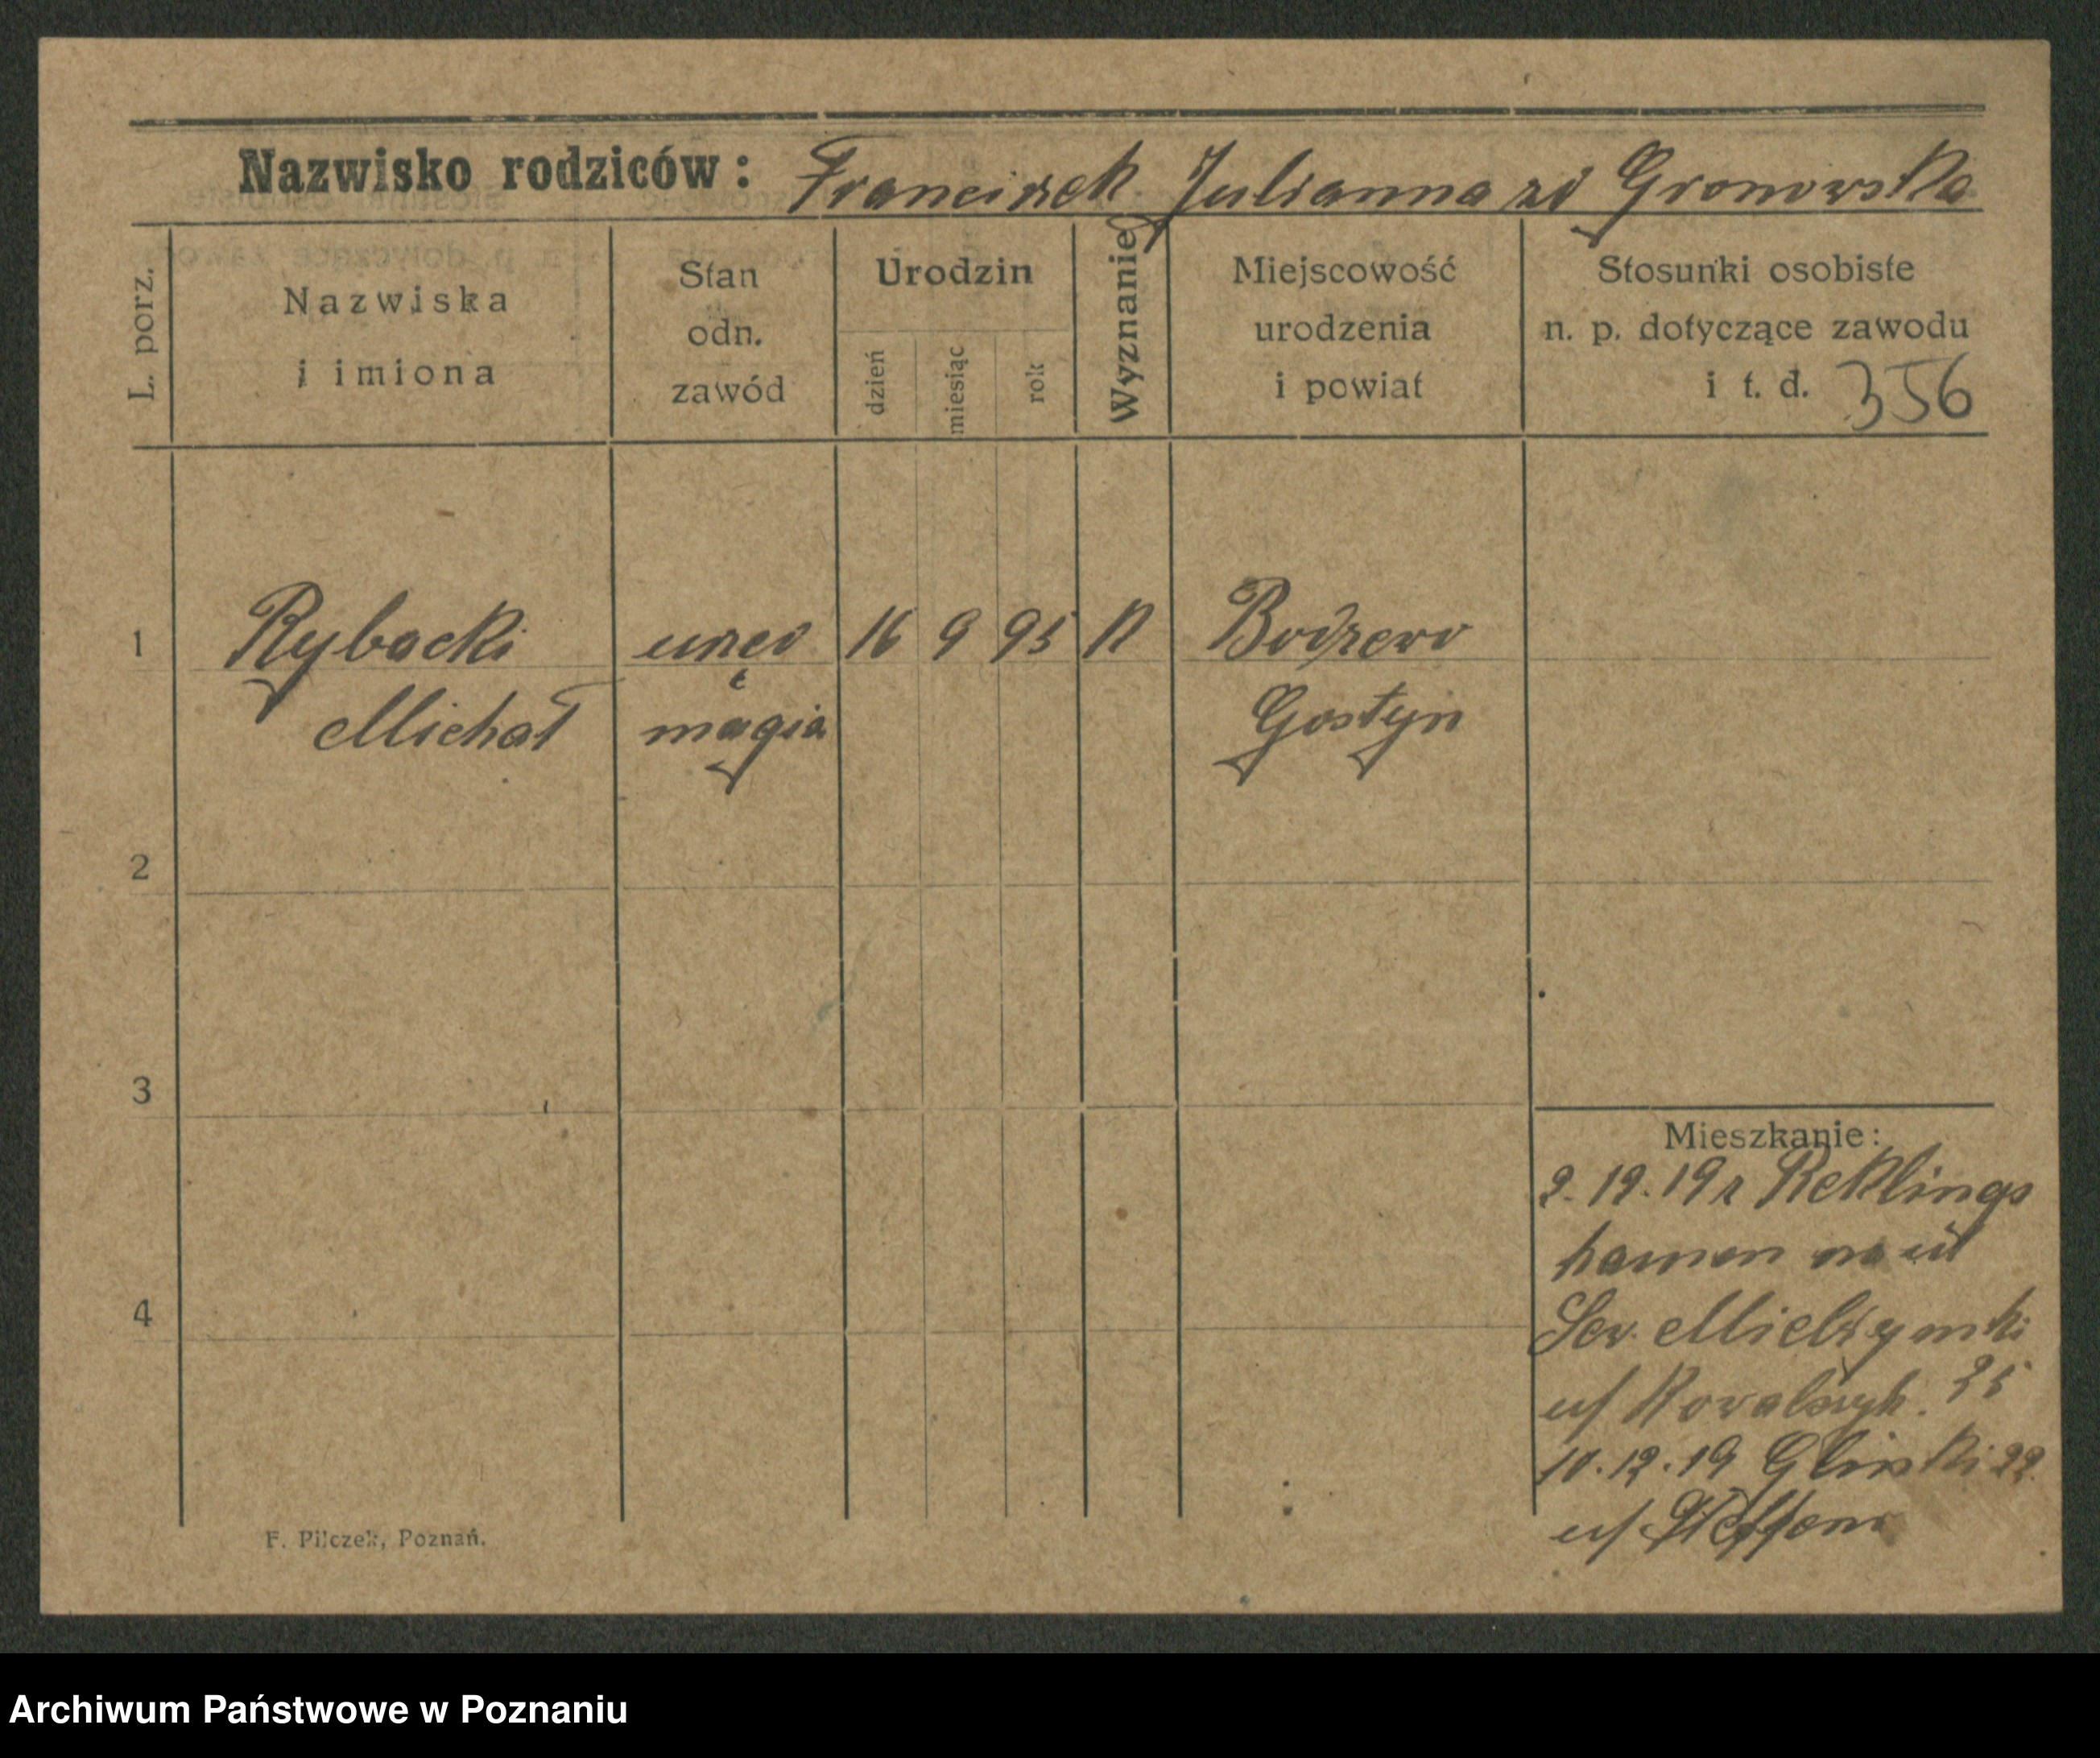 Nazwisko rodziców: Franciszek Julianna zd Gronowska
L. porz.
Nazwiska
i imiona
Stan
odn.
zawód
Urodzin
dzień
miesiąc
rok
Wyznanie
Miejscowość
urodzenia
i powiat
Stosunki osobiste
n. p. dotyczące zawodu
i t. d. 356
1 Rybacki 16 9 95 K
Michał
Gostyń
2
3
4
Mieszkanie:
2.12.19 r Reklings
hausen na ul
Sew. Mielżynski
u/ Kowalczyk. 25
10.12.19 Glinki 22
u/
F. Pilczek, Poznań.
Archiwum Państwowe w Poznaniu